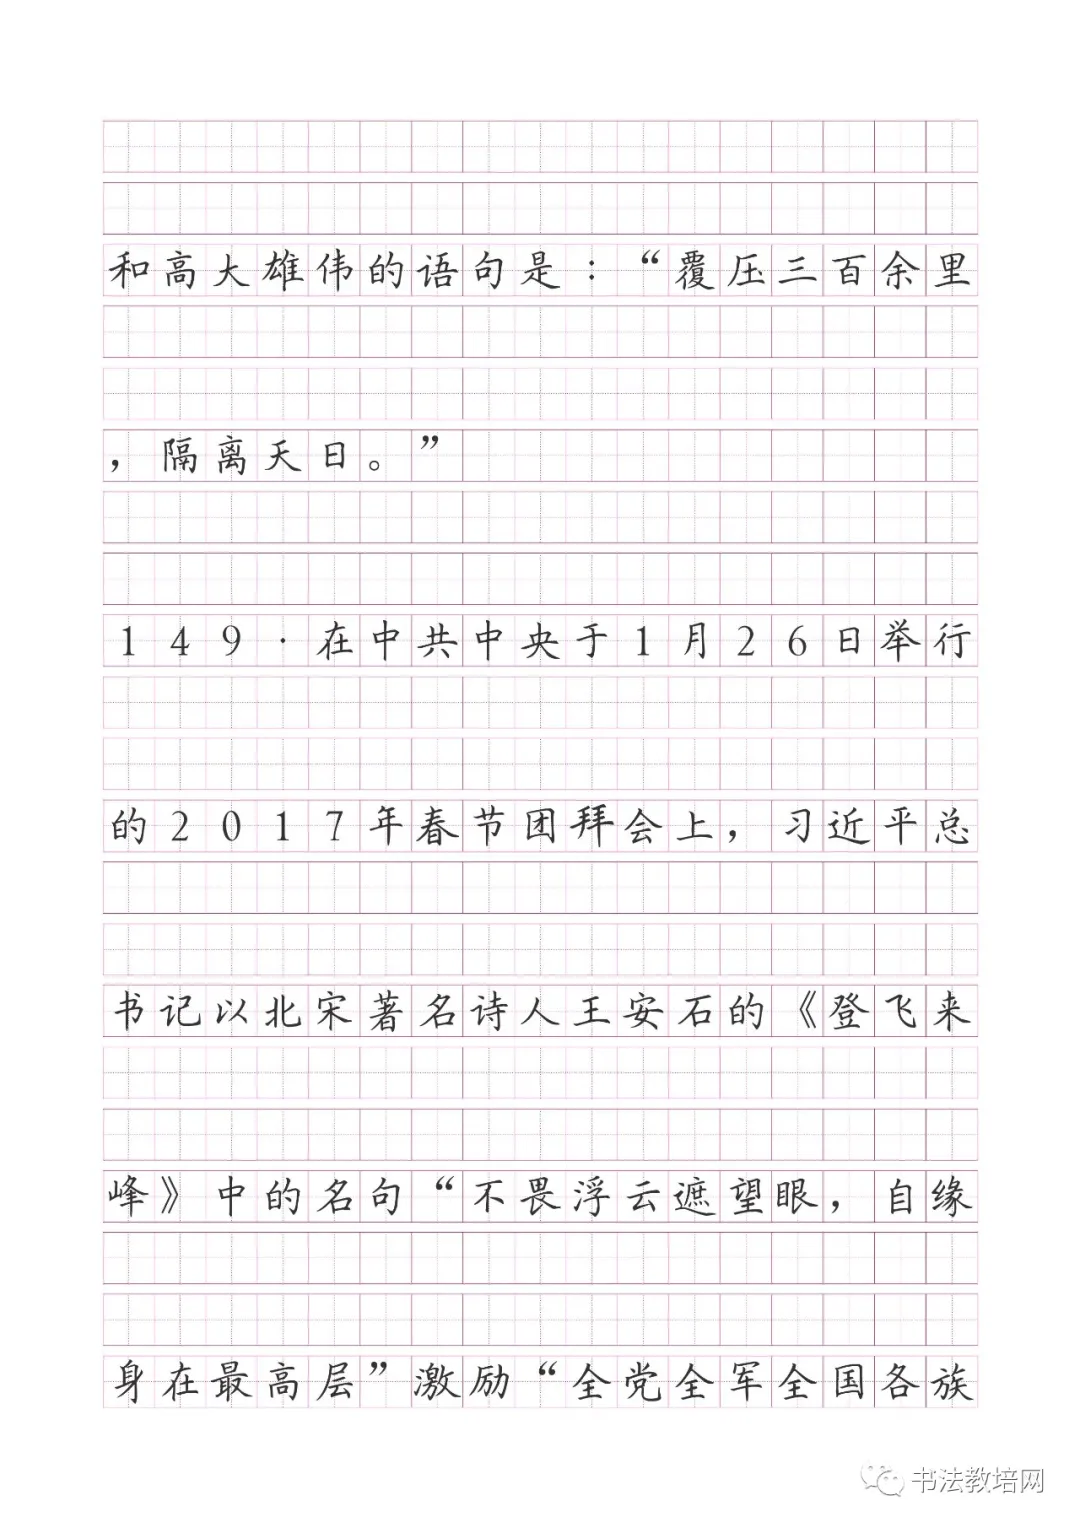 和高大雄伟的语句是：“覆压三百余里
，隔离天日。”
149·在中共中央于1月26日举行
的2017年春节团拜会上，习近平总
书记以北宋著名诗人王安石的《登飞来
峰》中的名句“不畏浮云遮望眼，自缘
身在最高层”激励“全党全军全国各族
书法教培网